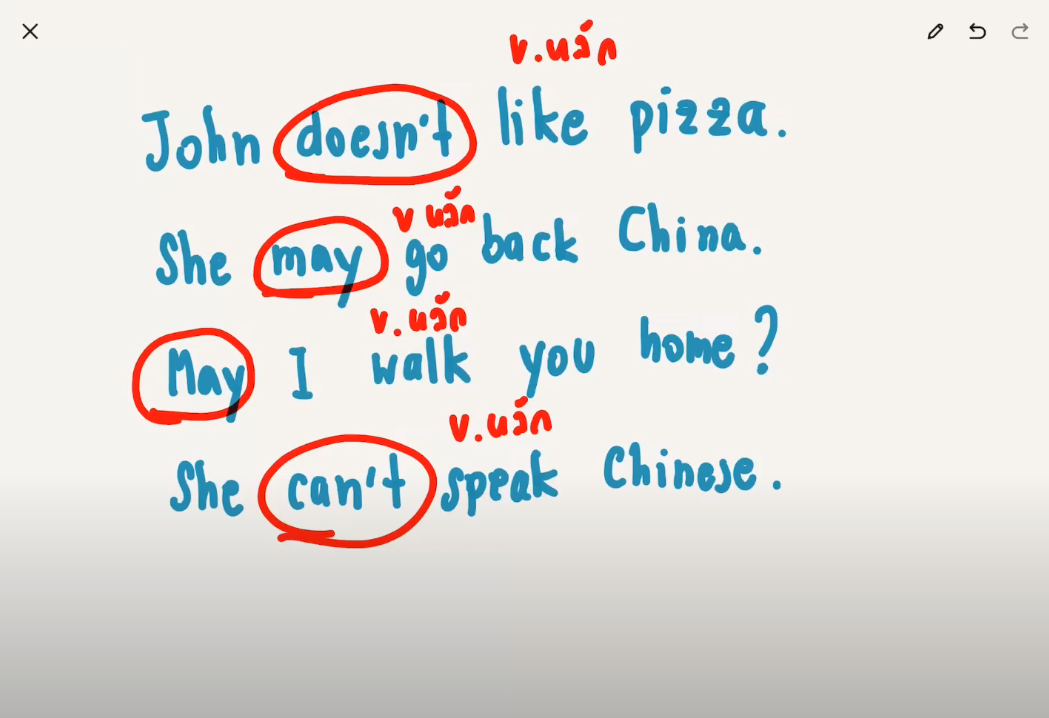 v.หลัก
John doesn't like pizza.
v หลัก
She may go back China.
v.หลัก
May I walk you home?
v.หลัก
She can't speak Chinese.